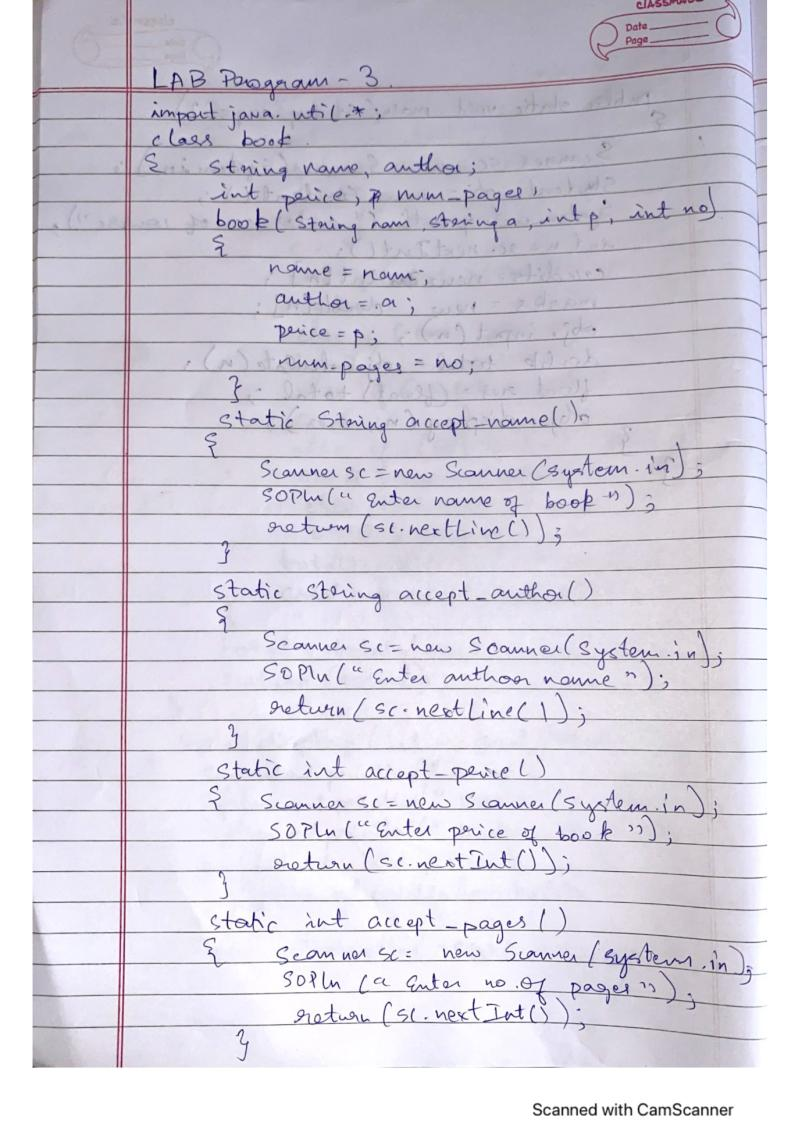 classmate
Date
Page
LAB Program - 3.
import java.util.*;
class book
{ String name, author;
int price, num_pages;
book( String nam, string a, int p, int no)
{
name = nam;
author = a;
price = p;
num_pages = no;
}
static String accept_name()
{
Scanner sc = new Scanner (System.in);
SOPln(" Enter name of book ");
return (sc.nextLine());
}
static string accept_author()
{
Scanner sc = new Scanner(System.in);
SOPln(" Enter author name ");
return (sc.nextLine());
}
static int accept_price()
{ Scanner sc = new Scanner (System.in);
SOPln ("Enter price of book ");
return (sc.nextInt());
}
static int accept_pages()
{ Scanner sc = new Scanner (System.in);
SOPln (" Enter no. of pages ");
return (sc.nextInt());
}
Scanned with CamScanner